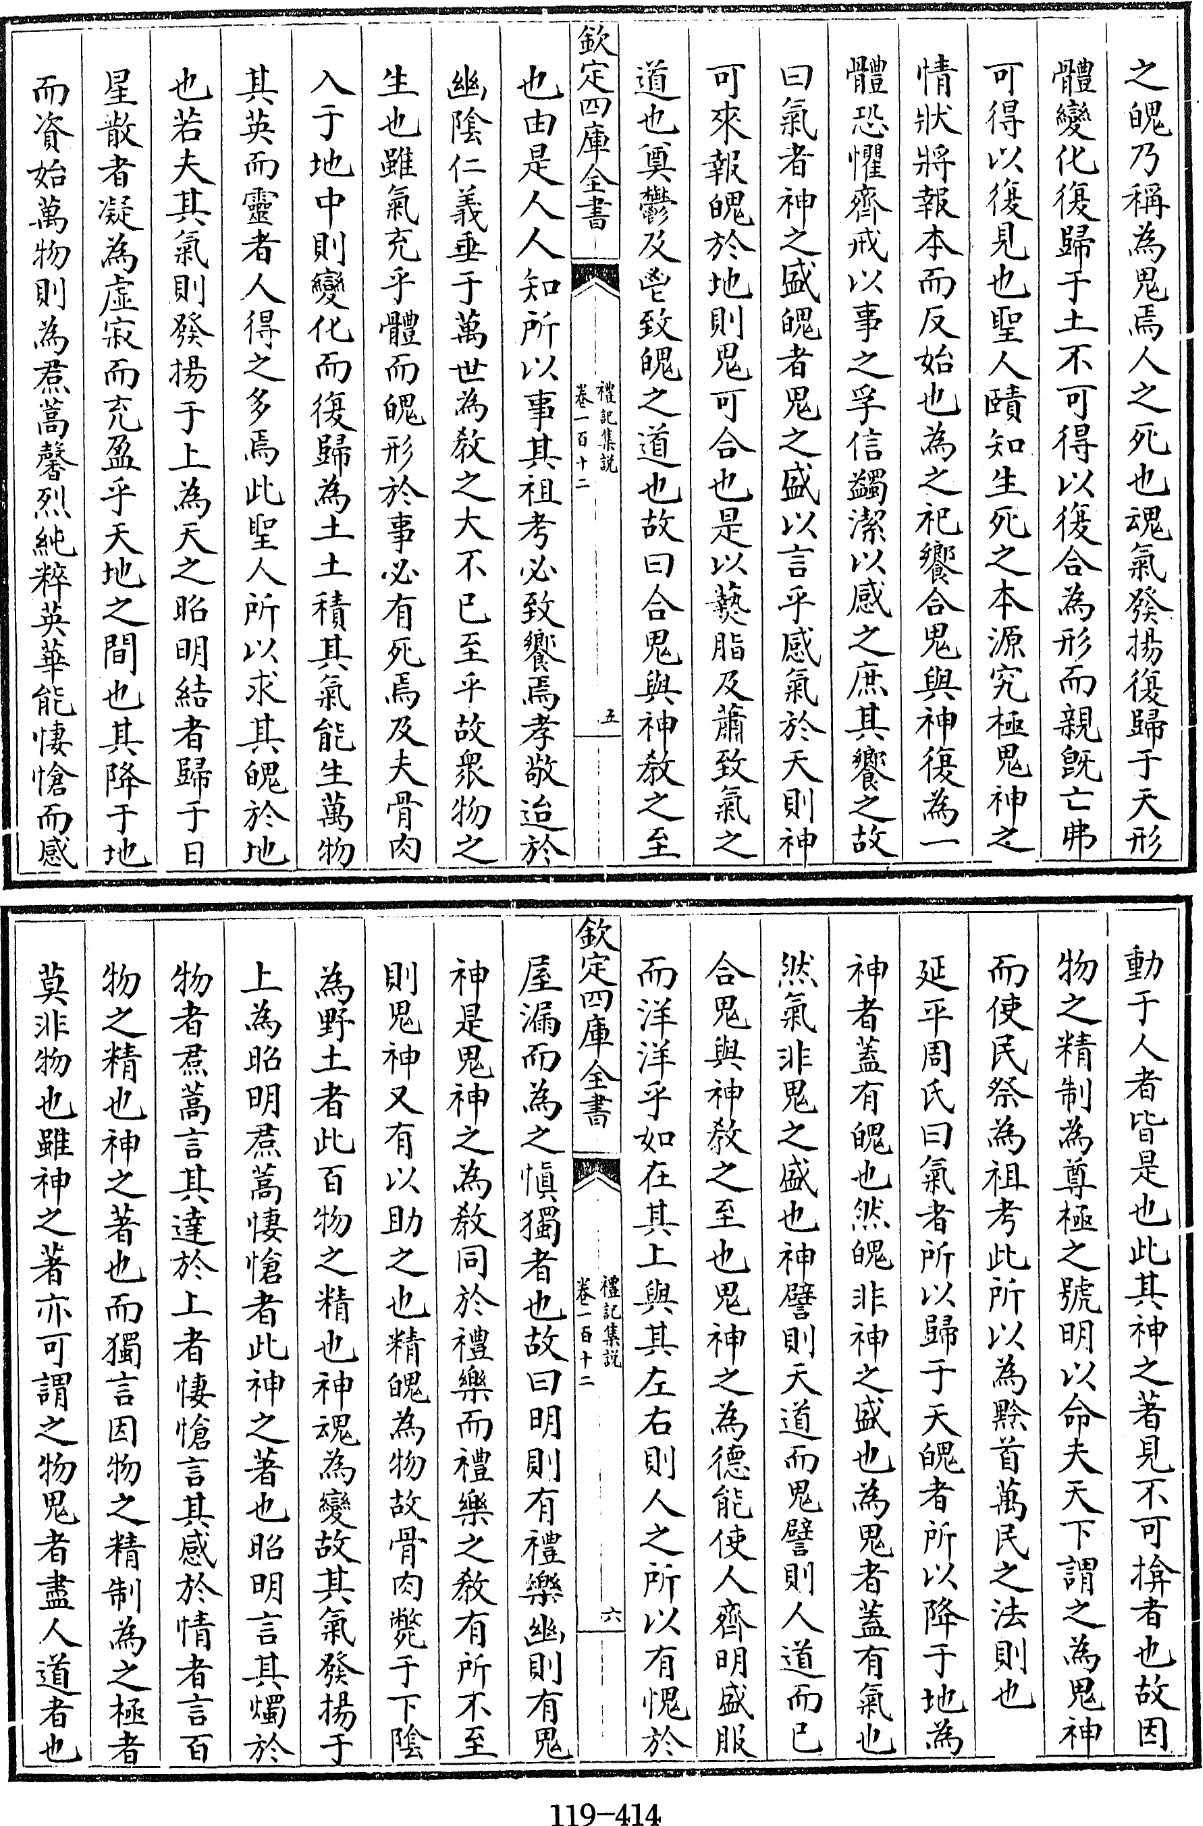 之魄乃稱為鬼焉人之死也魂氣發揚復歸于天形
體變化復歸于土不可得以復合為形而親既亡弗
可得以復見也聖人賾知生死之本源究極鬼神之
情狀將報本而反始也為之祀饗合鬼與神復為一
體恐懼齊戒以事之孚信蠲潔以感之庶其饗之故
曰氣者神之盛魄者鬼之盛以言乎感氣於天則神
可來報魄於地則鬼可合也是以爇脂及蕭致氣之
道也奠鬱及鬯致魄之道也故曰合鬼與神教之至
欽定四庫全書
禮記集説
卷一百十二
五
也由是人人知所以事其祖考必致饗焉孝敬迨於
幽陰仁義垂于萬世為教之大不已至乎故衆物之
生也雖氣充乎體而魄形於事必有死焉及夫骨肉
入于地中則變化而復歸為土土積其氣能生萬物
其英而靈者人得之多焉此聖人所以求其魄於地
也若夫其氣則發揚于上為天之昭明結者歸于日
星散者凝為虛寂而充盈乎天地之間也其降于地
而資始萬物則為焄蒿馨烈純粹英華能悽愴而感
動于人者皆是也此其神之著見不可揜者也故因
物之精制為尊極之號明以命夫天下謂之為鬼神
而使民祭為祖考此所以為黔首萬民之法則也
延平周氏曰氣者所以歸于天魄者所以降于地為
神者蓋有魄也然魄非神之盛也為鬼者蓋有氣也
然氣非鬼之盛也神譬則天道而鬼譬則人道而已
合鬼與神教之至也鬼神之為德能使人齊明盛服
而洋洋乎如在其上與其左右則人之所以有愧於
欽定四庫全書
禮記集説
卷一百十二
六
屋漏而為之慎獨者也故曰明則有禮樂幽則有鬼
神是鬼神之為教同於禮樂而禮樂之教有所不至
則鬼神又有以助之也精魄為物故骨肉斃于下陰
為野土者此百物之精也神魂為變故其氣發揚于
上為昭明焄蒿悽愴者此神之著也昭明言其燭於
物者焄蒿言其達於上者悽愴言其感於情者言百
物之精也神之著也而獨言因物之精制為之極者
莫非物也雖神之著亦可謂之物鬼者盡人道者也
119-414